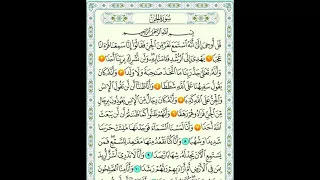 سُورَةُ الجِنّ
بِسْمِ اللَّهِ الرَّحْمَٰنِ الرَّحِيمِ
قُلْ أُوحِيَ إِلَيَّ أَنَّهُ ٱسْتَمَعَ نَفَرٌ مِّنَ ٱلْجِنِّ فَقَالُوٓا۟ إِنَّا سَمِعْنَا قُرْءَانًا
عَجَبًا ١ يَهْدِىٓ إِلَى ٱلرُّشْدِ فَـَٔامَنَّا بِهِۦ وَلَن نُّشْرِكَ بِرَبِّنَآ أَحَدًا ٢
وَأَنَّهُۥ تَعَٰلَىٰ جَدُّ رَبِّنَا مَا ٱتَّخَذَ صَٰحِبَةً وَلَا وَلَدًا ٣ وَأَنَّهُۥ كَانَ
يَقُولُ سَفِيهُنَا عَلَى ٱللَّهِ شَطَطًا ٤ وَأَنَّا ظَنَنَّآ أَن لَّن تَقُولَ ٱلْإِنسُ
وَٱلْجِنُّ عَلَى ٱللَّهِ كَذِبًا ٥ وَأَنَّهُۥ كَانَ رِجَالٌ مِّنَ ٱلْإِنسِ يَعُوذُونَ بِرِجَالٍ
مِّنَ ٱلْجِنِّ فَزَادُوهُمْ رَهَقًا ٦ وَأَنَّهُمْ ظَنُّوا۟ كَمَا ظَنَنتُمْ أَن لَّن يَبْعَثَ
ٱللَّهُ أَحَدًا ٧ وَأَنَّا لَمَسْنَا ٱلسَّمَآءَ فَوَجَدْنَٰهَا مُلِئَتْ حَرَسًا
شَدِيدًا وَشُهُبًا ٨ وَأَنَّا كُنَّا نَقْعُدُ مِنْهَا مَقَٰعِدَ لِلسَّمْعِ فَمَن
يَسْتَمِعِ ٱلْـَٔانَ يَجِدْ لَهُۥ شِهَابًا رَّصَدًا ٩ وَأَنَّا لَا نَدْرِىٓ أَشَرٌّ أُرِيدَ
بِمَن فِى ٱلْأَرْضِ أَمْ أَرَادَ بِهِمْ رَبُّهُمْ رَشَدًا ١٠ وَأَنَّا مِنَّا